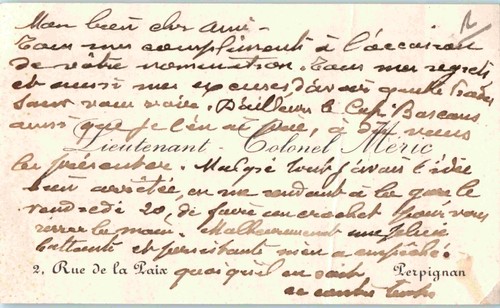 Mon bien cher ami -
Tous mes compliments à l'occasion
de votre nomination. Tous mes regrets
et aussi mes excuses d'avoir quitté
sans vous voir. D'ailleurs le Cap. Bascans
aussi que je l'en ai prié, a dû vous
Lieutenant-Colonel Meric
les présenter. Malgré tout j'avais l'idée
bien arrêtée, en me rendant à la gare le
vendredi 20, de faire un crochet pour vous
serrer la main. Malheureusement une pluie
battante et persistante m'en a empêché.
2, Rue de la Paix Perpignan
quoiqu'il en soit